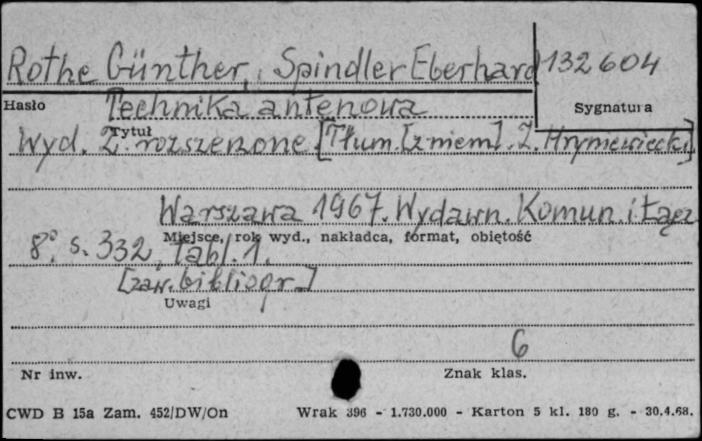 Rothe Günther, Spindler Eberhard 132604
Hasło Technika antenowa Sygnatura
Tytuł
Wyd. 2. rozszerzone. [Tłum. [z niem]. Z. Hrymewiecki]
Warszawa 1967. Wydawn. Komun. i Łącz
Miejsce, rok wyd., nakładca, format, objętość
8°. s. 332, tabl. 1.
[zaw. bibliogr.]
Uwagi
6
Nr inw. Znak klas.
CWD B 15a Zam. 452/DW/On Wrak 396 - 1.730.000 - Karton 5 kl. 180 g. - 30.4.68.